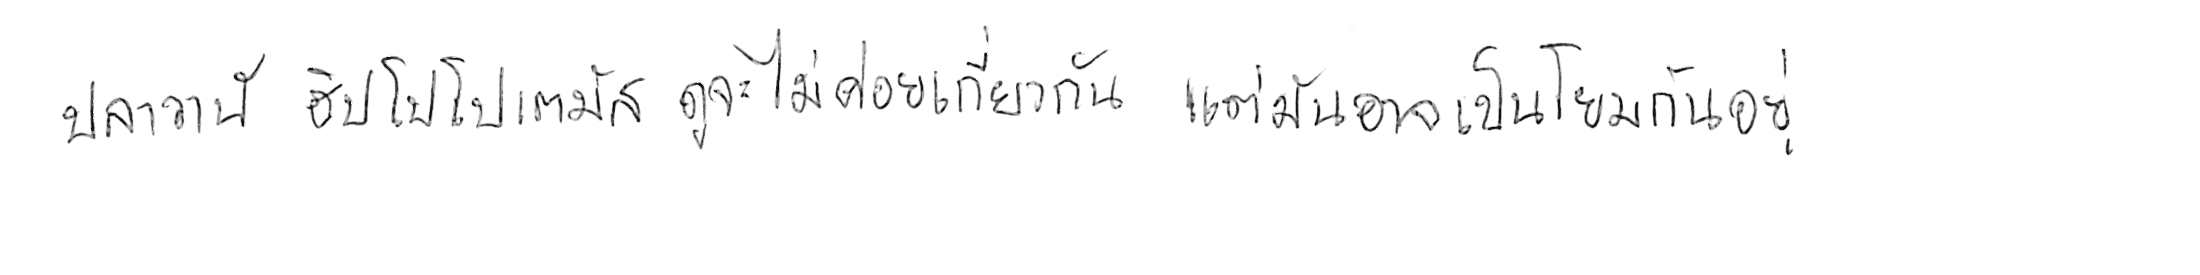 ปลาวาฬ ฮิปโปโปเตมัส ดูจะไม่ค่อยเกี่ยวกัน แต่มันอาจเป็นโยมกันอยู่